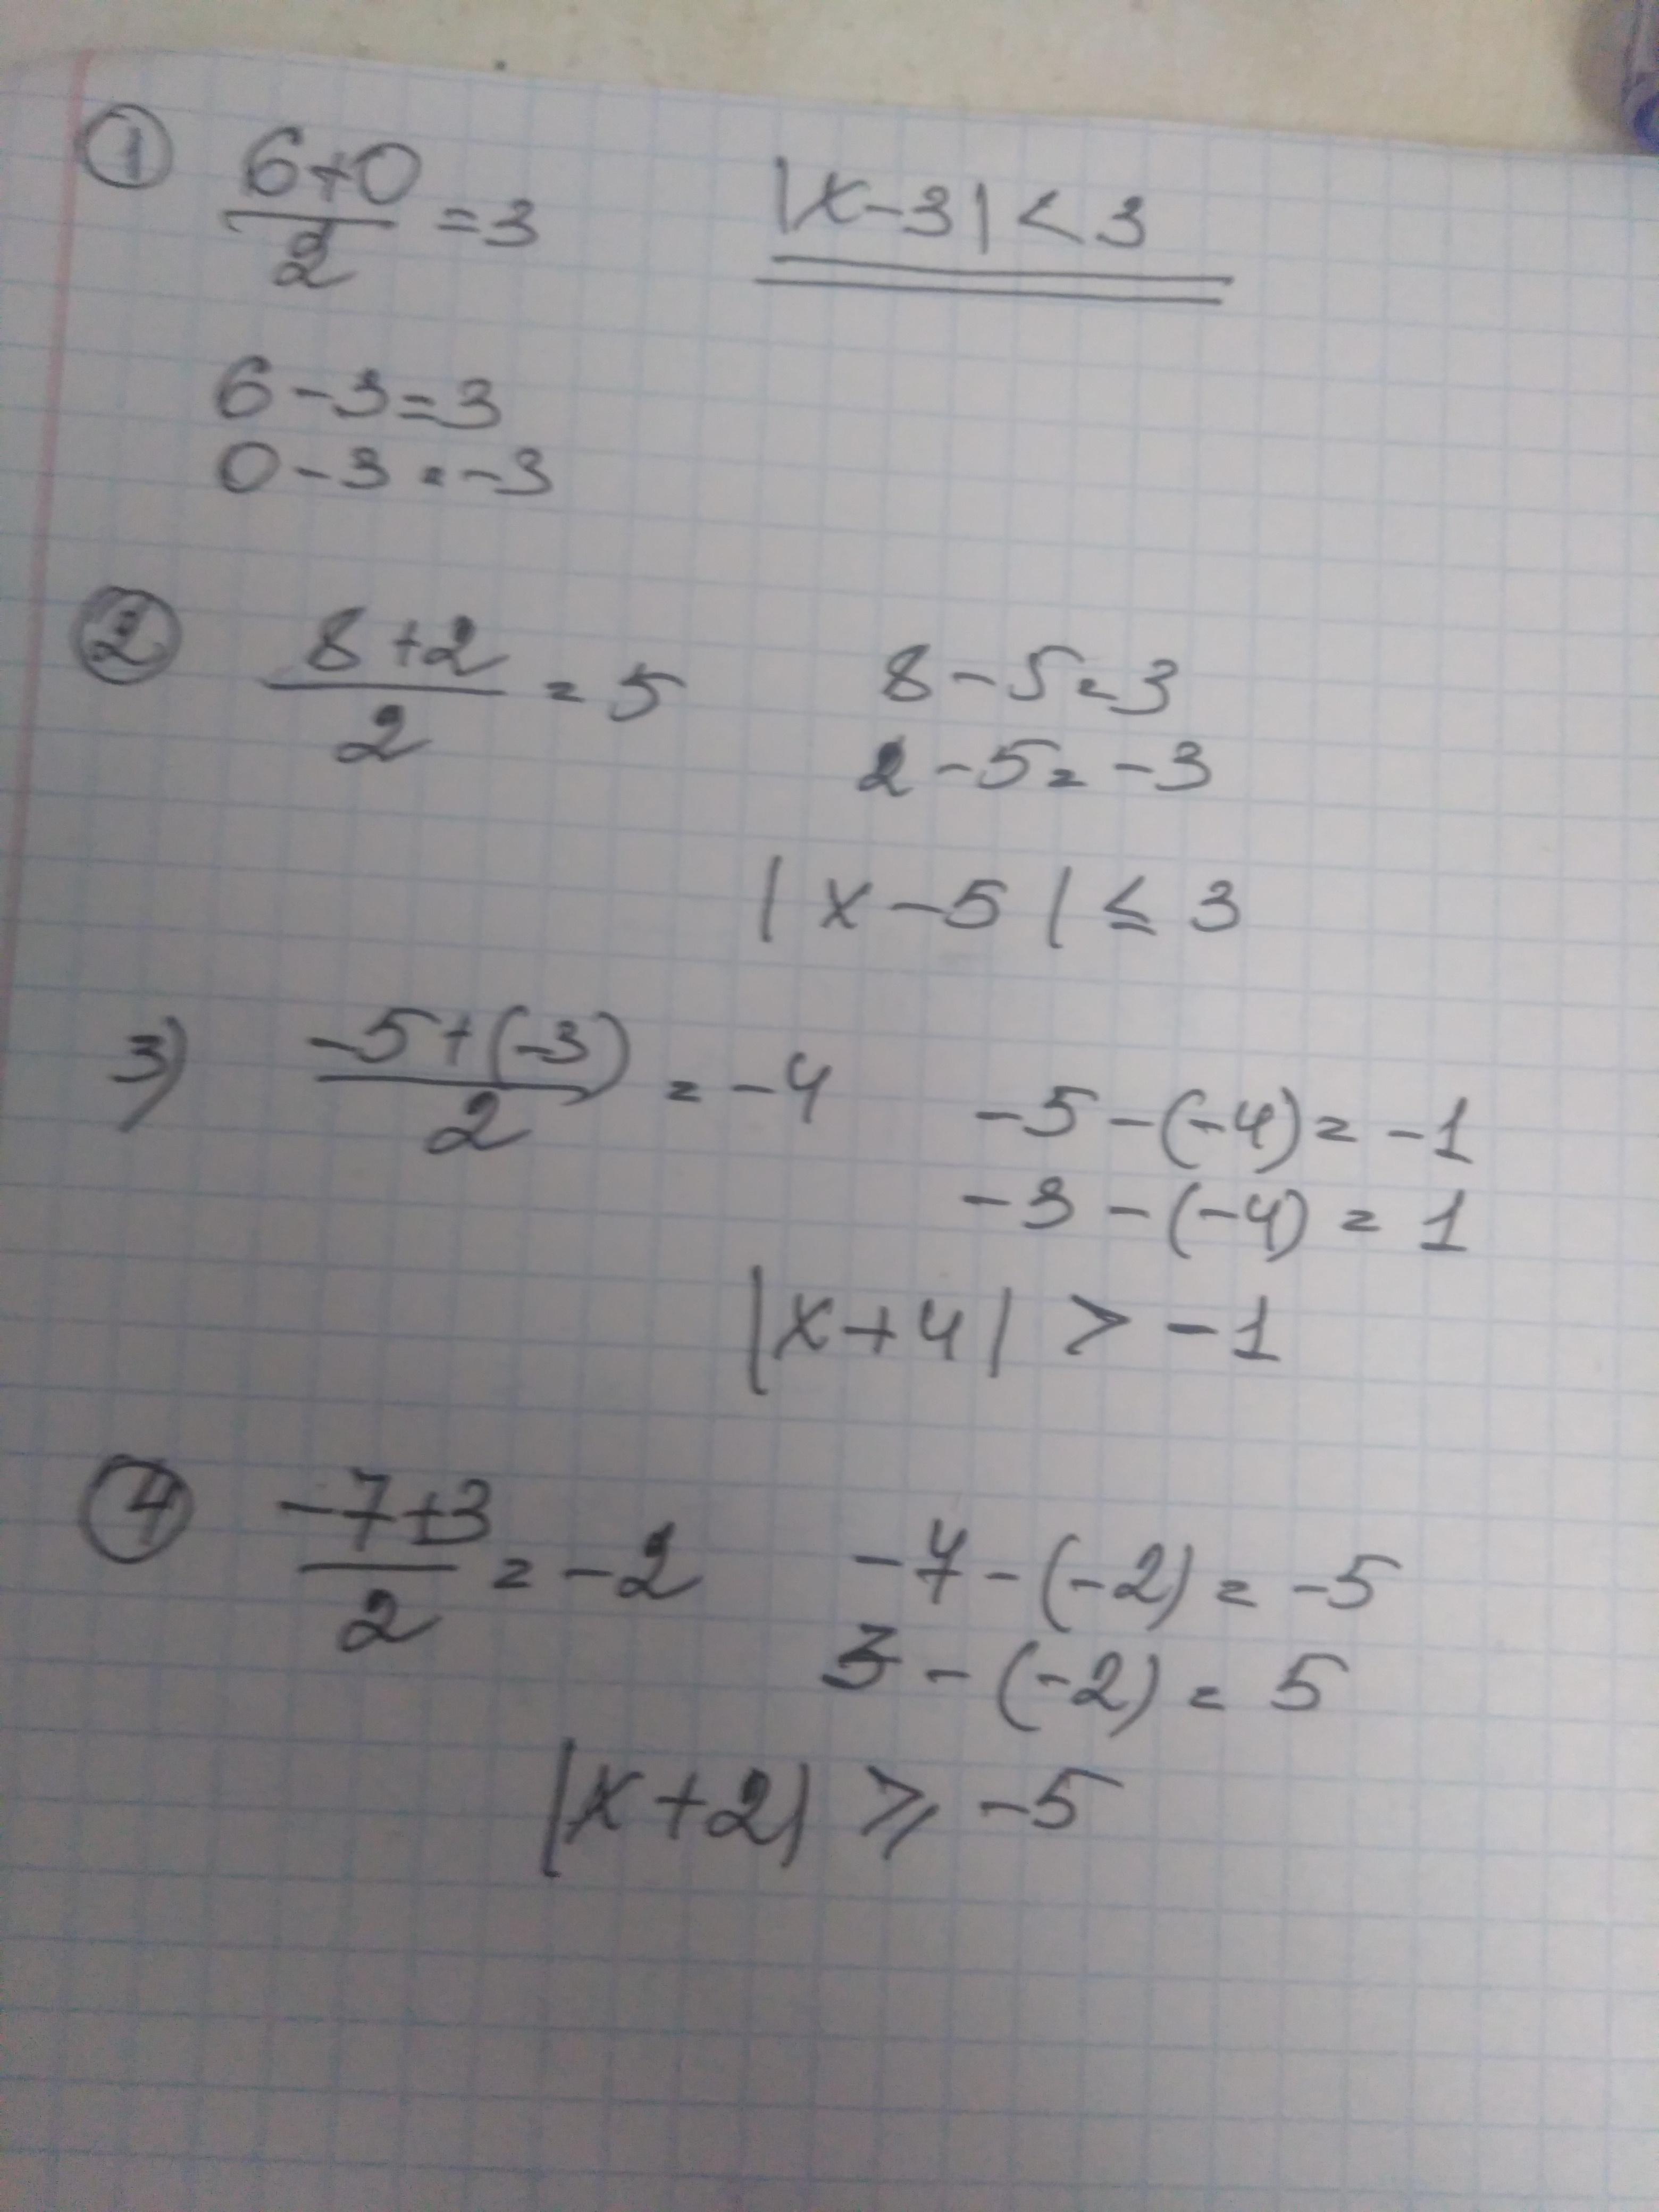 ① (6+0)/2 = 3    |x-3| < 3
6-3=3
0-3=-3
② (8+2)/2 = 5    8-5=3
2-5=-3
|x-5| ≤ 3
3) (-5+(-3))/2 = -4    -5-(-4)=-1
-3-(-4)=1
|x+4| > -1
④ (-7+3)/2 = -2    -7-(-2)=-5
3-(-2)=5
|x+2| ≥ -5